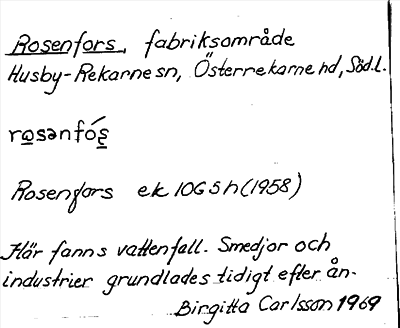 Rosenfors, fabriksområde
Husby-Rekarne sn, Österrekarne hd, Södl.
rosənfórs
Rosenfors ek 10G5h (1958)
Här fanns vattenfall. Smedjor och
industrier grundlades tidigt efter ån.
Birgitta Carlsson 1969